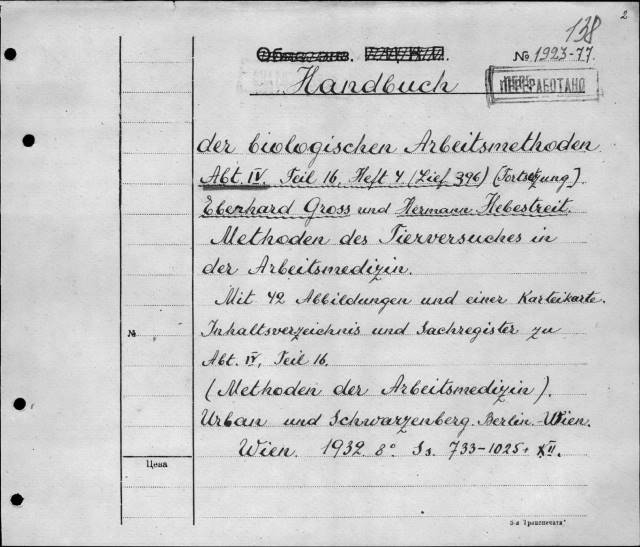 2
138
№ 1923-77.
Handbuch
ПЕРЕРАБОТАНО
der biologischen Arbeitsmethoden
Abt. IV. Teil 16, Heft 4 (Lief 396) (Fortsetzung)
Eberhard Gross und Hermann Hebestreit.
Methoden des Tierversuches in
der Arbeitsmedizin.
Mit 42 Abbildungen und einer Karteikarte.
№
Inhaltsverzeichnis und Sachregister zu
Abt. IV, Teil 16.
(Methoden der Arbeitsmedizin).
Urban und Schwarzenberg. Berlin-Wien.
Wien. 1932 8° Ss. 733-1025 + XII.
Цена
3-я "Транспечати"